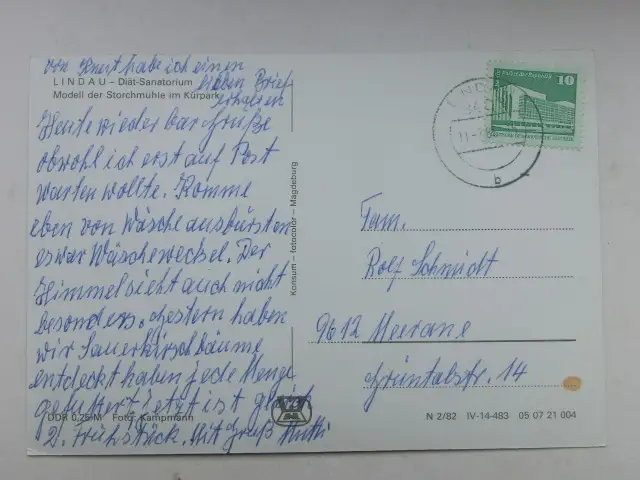 von Horst habe ich einen
LINDAU – Diät-Sanatorium
lieben Brief
Modell der Storchmühle im Kurpark
erhalten
Heute wieder bar Grüße
obwohl ich erst auf Post
warten wollte. Komme
eben von Wäsche ausbürsten
es war Wäschewechsel. Der
Himmel sieht auch nicht
besonders. Gestern haben
wir Sauerkirschbäume
entdeckt haben jede Menge
gefuttert jetzt ist gleich
DDR 0,25 M Foto: Kampmann
2. Frühstück. Mit Gruß Mutti
Konsum – fotocolor – Magdeburg
10
LINDAU
b
Fam.
Rolf Schmidt
9612 Meerane
Grüntalstr. 14
N 2/82 IV-14-483 05 07 21 004